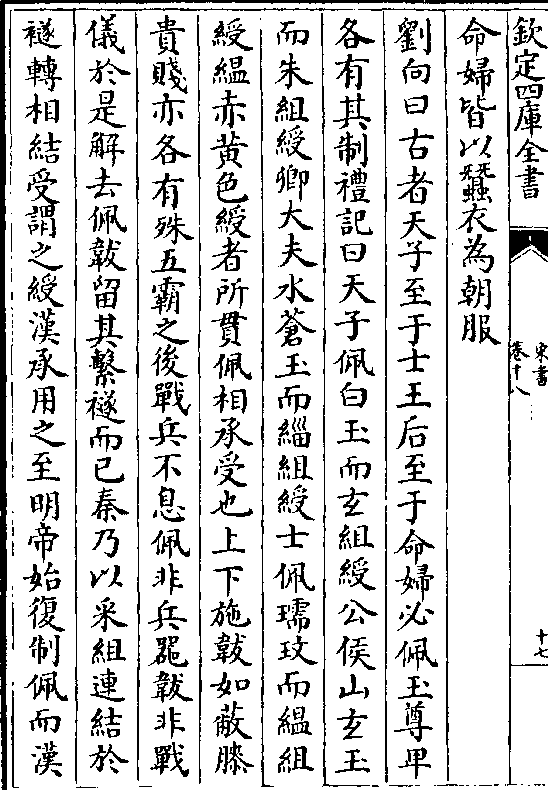 欽定四庫全書
宋書
卷十八
十七
命婦皆以蠶衣為朝服
劉向曰古者天子至于士王后至于命婦必佩玉尊卑
各有其制禮記曰天子佩白玉而玄組綬公侯山玄玉
而朱組綬卿大夫水蒼玉而緇組綬士佩瓀玟而縕組
綬縕赤黄色綬者所貫佩相承受也上下施韍如蔽膝
貴賤亦各有殊五霸之後戰兵不息佩非兵噐韍非戰
儀於是解去佩韍留其繫襚而已秦乃以采組連結於
襚轉相結受謂之綬漢承用之至明帝始復制佩而漢